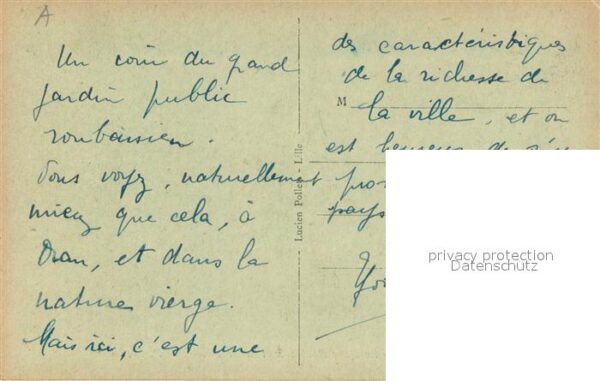 A
Un coin du grand
jardin public
roubaisien.
Vous voyez, naturellement
mieux que cela, à
Oran, et dans la
nature vierge.
Mais ici, c'est une
des caractéristiques
de la richesse de
M la ville, et on
est heureux de
pays
Lucien Pollet - Lille
privacy protection
Datenschutz